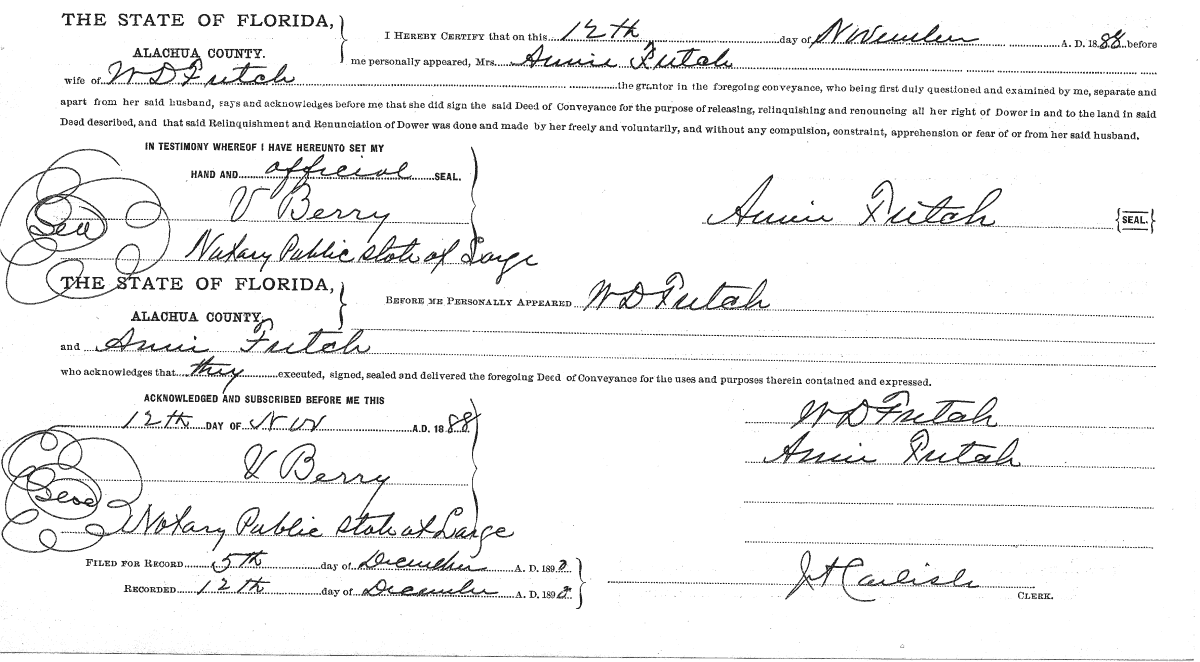 THE STATE OF FLORIDA,
ALACHUA COUNTY.
I HEREBY CERTIFY that on this 12th day of November A. D. 1888 before
me personally appeared, Mrs. Annie Futch
wife of W D Futch the grantor in the foregoing conveyance, who being first duly questioned and examined by me, separate and
apart from her said husband, says and acknowledges before me that she did sign the said Deed of Conveyance for the purpose of releasing, relinquishing and renouncing all her right of Dower in and to the land in said
Deed described, and that said Relinquishment and Renunciation of Dower was done and made by her freely and voluntarily, and without any compulsion, constraint, apprehension or fear of or from her said husband.
IN TESTIMONY WHEREOF I HAVE HEREUNTO SET MY
HAND AND official SEAL.
V Berry
Seal
Notary Public state at Large
Annie Futch {SEAL.}
THE STATE OF FLORIDA,
ALACHUA COUNTY.
BEFORE ME PERSONALLY APPEARED W D Futch
and Annie Futch
who acknowledges that they executed, signed, sealed and delivered the foregoing Deed of Conveyance for the uses and purposes therein contained and expressed.
ACKNOWLEDGED AND SUBSCRIBED BEFORE ME THIS
12th DAY OF Nov A.D. 1888
V Berry
Seal
Notary Public state at Large
W D Futch
Annie Futch
FILED FOR RECORD 5th day of December A. D. 189
RECORDED 12th day of December A. D. 189
J H Carlisle
CLERK.